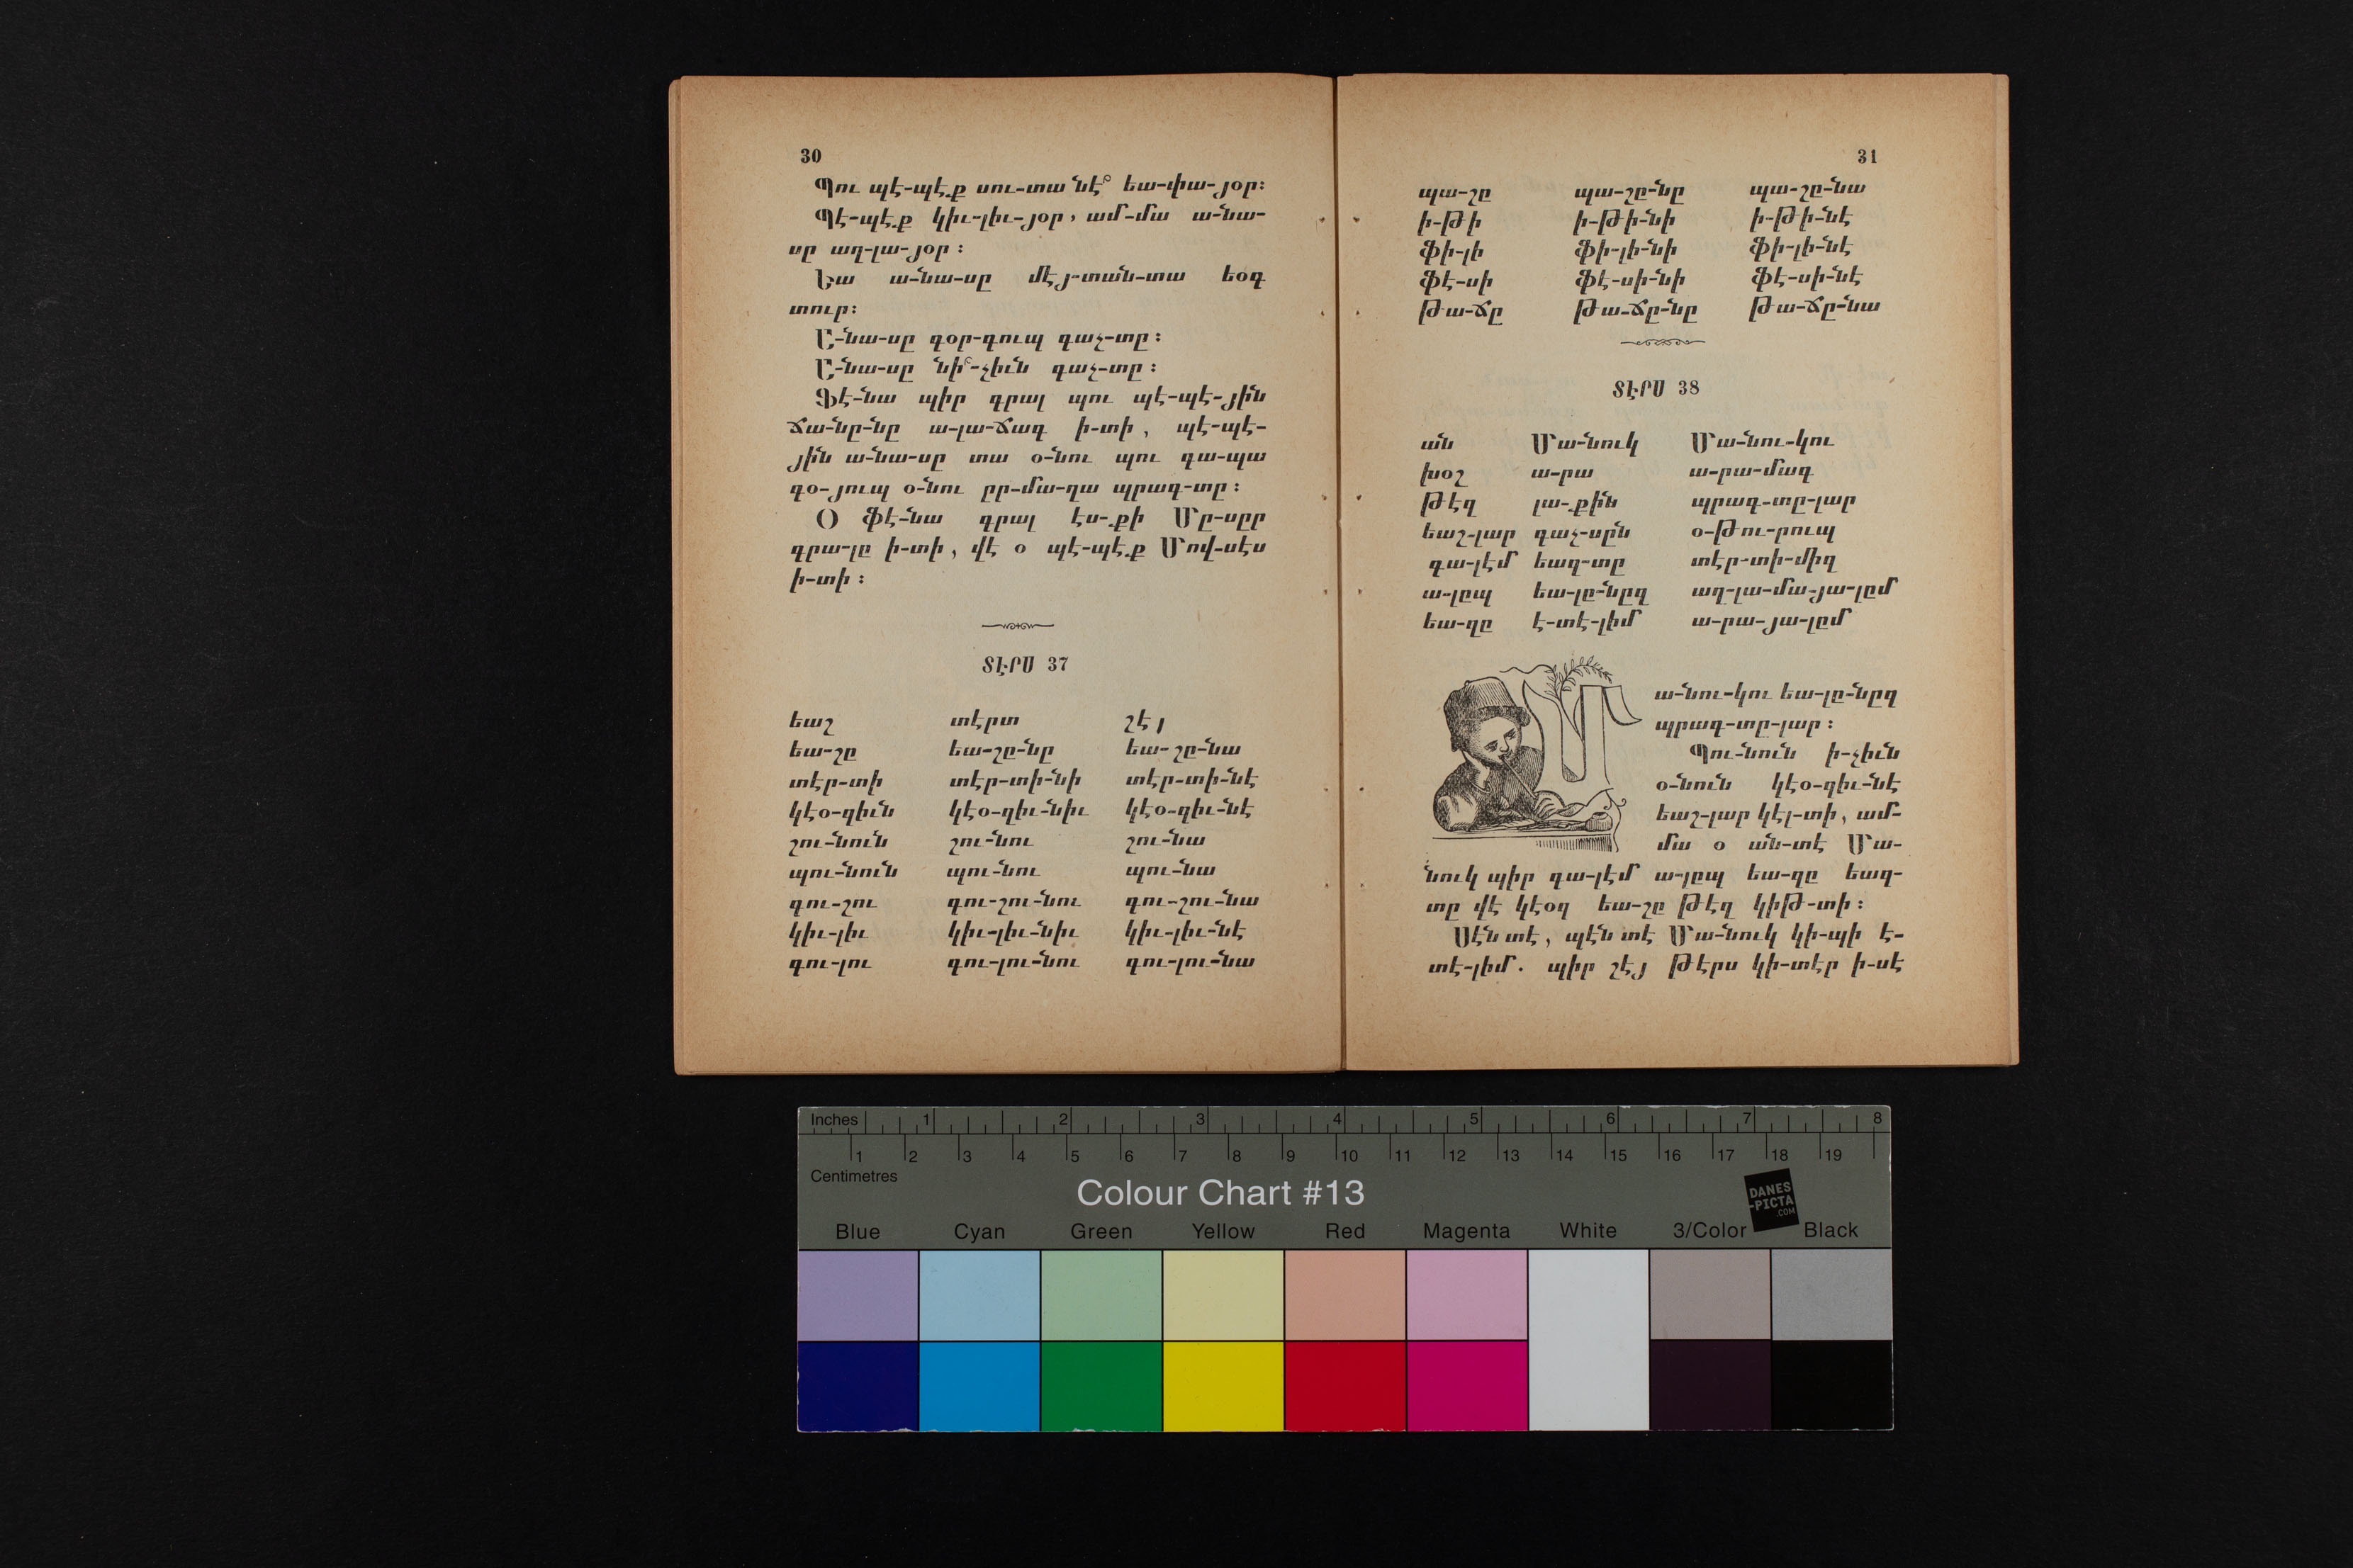 30
Պու պէ-պէք սու-տա նէ՞ եա-փա-յօր։
Պէ-պէք կիւ-լիւ-յօր, ամ-մա ա-նա-
սը աղ-լա-յօր։
Եա ա-նա-սը մէյ-տան-տա եօգ
տուր։
Ա-նա-սը գօր-գուպ գաչ-տը։
Ա-նա-սը նի՞-չիւն գաչ-տը։
Ֆէ-նա պիր գրալ պու պէ-պէ-յին
ճա-նը-նը ա-լա-ճագ ի-տի, պէ-պէ-
յին ա-նա-սը տա օ-նու պու գա-պա
գօ-յուպ օ-նու ըր-մա-ղա պրագ-տը։
Օ ֆէ-նա գրալ էս-քի Մը-սըր
գրա-լը ի-տի, վէ օ պէ-պէք Մով-սէս
ի-տի։
ՏԷՐՍ 37
եաշ տէրտ շէյ
եա-շը եա-շը-նը եա-շը-նա
տէր-տի տէր-տի-նի տէր-տի-նէ
կէօ-զիւն կէօ-զիւ-նիւ կէօ-զիւ-նէ
շու-նուն շու-նու շու-նա
պու-նուն պու-նու պու-նա
գու-շու գու-շու-նու գու-շու-նա
կիւ-լիւ կիւ-լիւ-նիւ կիւ-լիւ-նէ
գու-լու գու-լու-նու գու-լու-նա
31
պա-շը պա-շը-նը պա-շը-նա
ի-թի ի-թի-նի ի-թի-նէ
ֆի-լի ֆի-լի-նի ֆի-լի-նէ
ֆէ-սի ֆէ-սի-նի ֆէ-սի-նէ
թա-ճը թա-ճը-նը թա-ճը-նա
ՏԷՐՍ 38
ան Մա-նուկ Մա-նու-կու
խօշ ա-րա ա-րա-մագ
թէզ լա-քին պրագ-տը-լար
եաշ-լար գաչ-սըն օ-թու-րուպ
գա-լէմ եազ-տը տէր-տի-միզ
ա-լըպ եա-լը-նըզ աղ-լա-մա-յա-լըմ
եա-զը է-տէ-լիմ ա-րա-յա-լըմ
Մա-նու-կու եա-լը-նըզ
պրագ-տը-լար։
Պու-նուն ի-չիւն
օ-նուն կէօ-զիւ-նէ
եաշ-լար կէլ-տի, ամ-
մա օ ան-տէ Մա-
նուկ պիր գա-լէմ ա-լըպ եա-զը եազ-
տը վէ կէօզ եա-շը թէզ կիթ-տի։
Սէն տէ, պէն տէ Մա-նուկ կի-պի է-
տէ-լիմ. պիր շէյ թէրս կի-տէր ի-սէ
Inches 1 2 3 4 5 6 7 8
1 2 3 4 5 6 7 8 9 10 11 12 13 14 15 16 17 18 19
Centimetres
Colour Chart #13
DANES
-PICTA
.COM
Blue Cyan Green Yellow Red Magenta White 3/Color Black